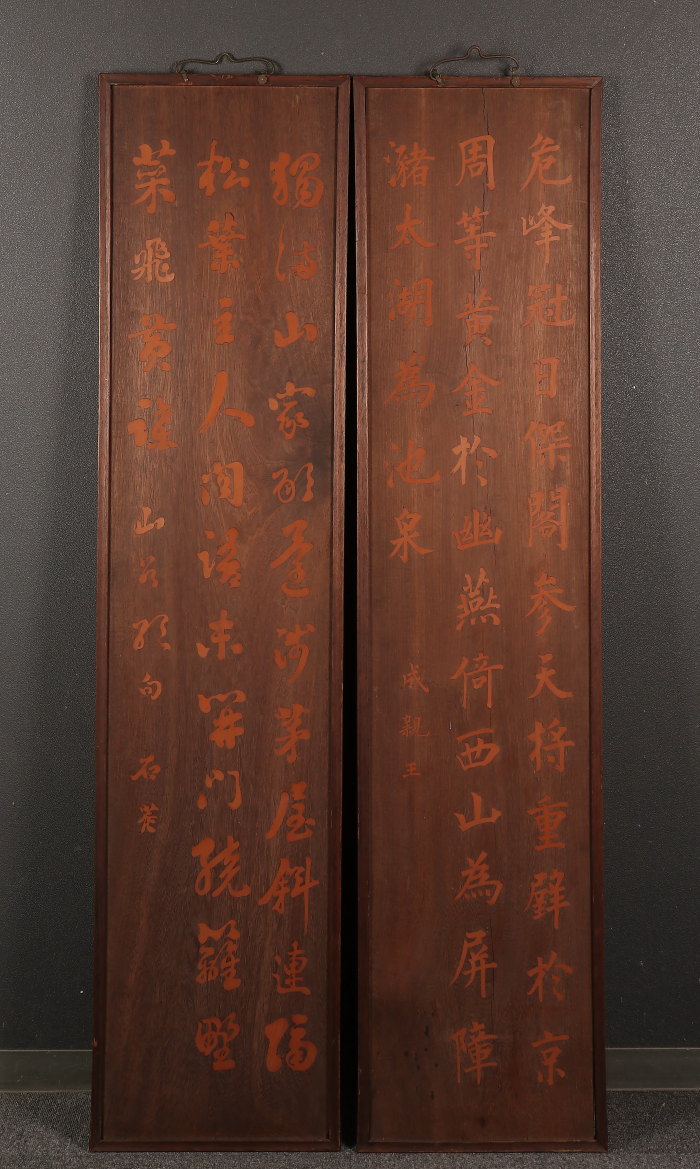 危峰冠日傑閣參天將重璧於京
周等黃金於幽燕倚西山為屏障
瀦太湖為池泉
成親王
獨訪山家歇還涉茅屋斜連隔
松葉主人聞語未開門繞籬野
菜飛黃蝶
山谷句 石菴